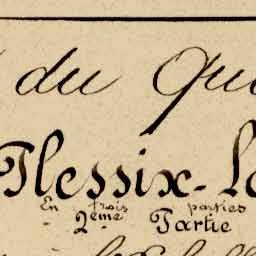 du Qu
Plessix-L
En trois parties
2ème Partie